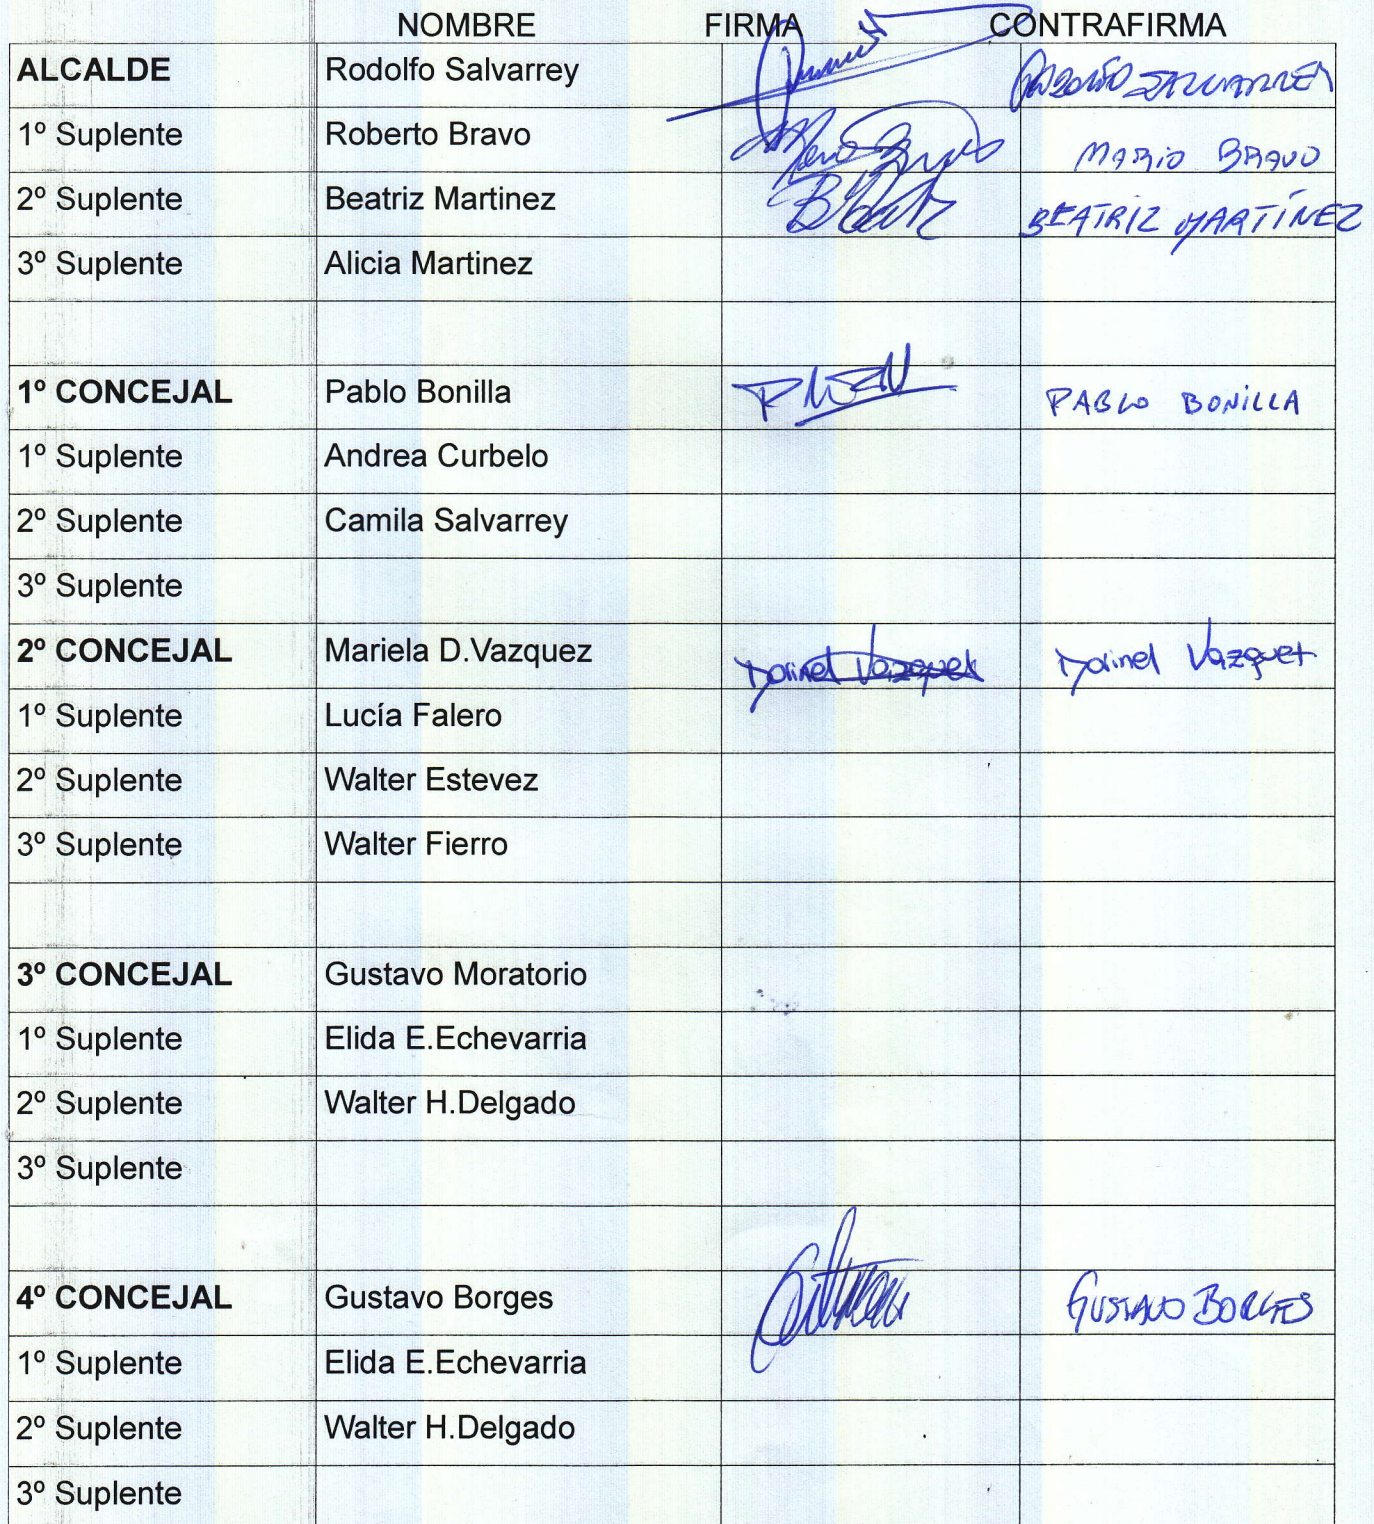 NOMBRE FIRMA CONTRAFIRMA
ALCALDE Rodolfo Salvarrey RODOLFO SALVARREY
1º Suplente Roberto Bravo Mario Bravo MARIO BRAVO
2º Suplente Beatriz Martinez BEATRIZ MARTÍNEZ
3º Suplente Alicia Martinez
1º CONCEJAL Pablo Bonilla PABLO BONILLA
1º Suplente Andrea Curbelo
2º Suplente Camila Salvarrey
3º Suplente
2º CONCEJAL Mariela D.Vazquez Dorinel Vazquez Dorinel Vazquez
1º Suplente Lucía Falero
2º Suplente Walter Estevez
3º Suplente Walter Fierro
3º CONCEJAL Gustavo Moratorio
1º Suplente Elida E.Echevarria
2º Suplente Walter H.Delgado
3º Suplente
4º CONCEJAL Gustavo Borges GUSTAVO BORGES
1º Suplente Elida E.Echevarria
2º Suplente Walter H.Delgado
3º Suplente